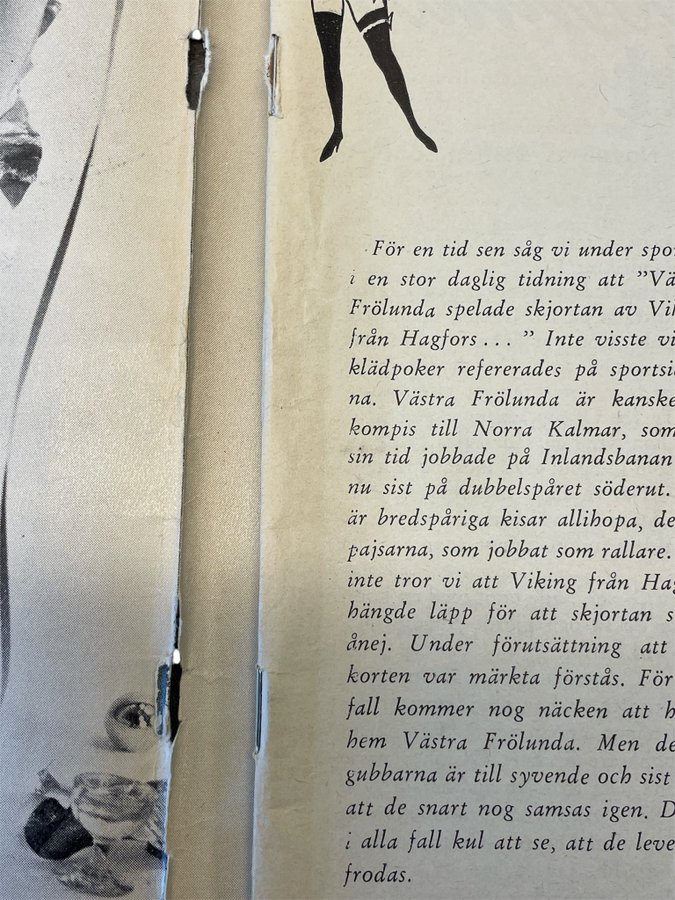 För en tid sen såg vi under spor
i en stor daglig tidning att ”Vä
Frölunda spelade skjortan av Vik
från Hagfors... ” Inte visste vi
klädpoker refererades på sportsi
na. Västra Frölunda är kanske
kompis till Norra Kalmar, som
sin tid jobbade på Inlandsbanan
nu sist på dubbelspåret söderut.
är bredspåriga kisar allihopa, de
pajsarna, som jobbat som rallare.
inte tror vi att Viking från Hag
hängde läpp för att skjortan s
ånej. Under förutsättning att
korten var märkta förstås. För
fall kommer nog näcken att h
hem Västra Frölunda. Men de
gubbarna är till syvende och sist
att de snart nog samsas igen. D
i alla fall kul att se, att de leve
frodas.